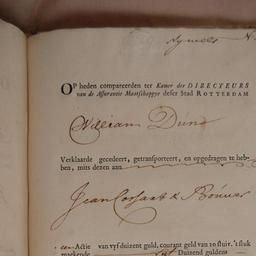 OP heden compareerden ter Kamer der DIRECTEURS
van de Assurantie Maatschappye deser Stad ROTTERDAM
William Dund
Verklaarde gecedeert, getransporteert, en opgedragen te heb-
ben, mits dezen aan
Jean Cossart & Bouwer
een Actie van vyf duizent guld, courant geld van 20 stuiv. 't stuk
makende Duizend guldens